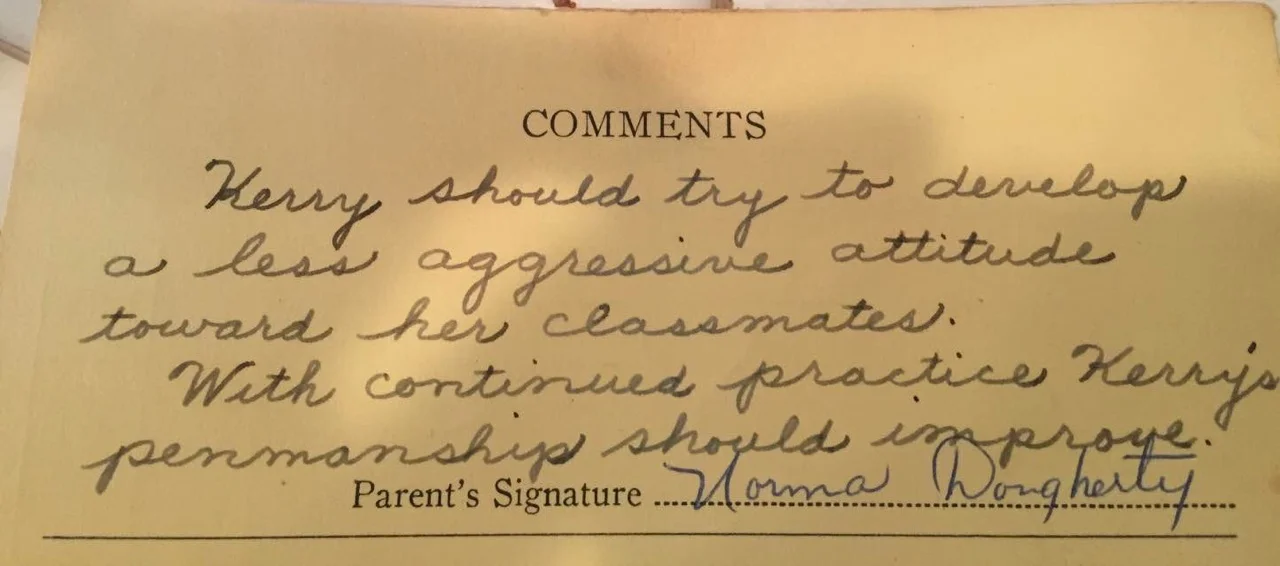 COMMENTS
Kerry should try to develop
a less aggressive attitude
toward her classmates.
With continued practice Kerry's
penmanship should improve.
Parent's Signature Norma Dougherty